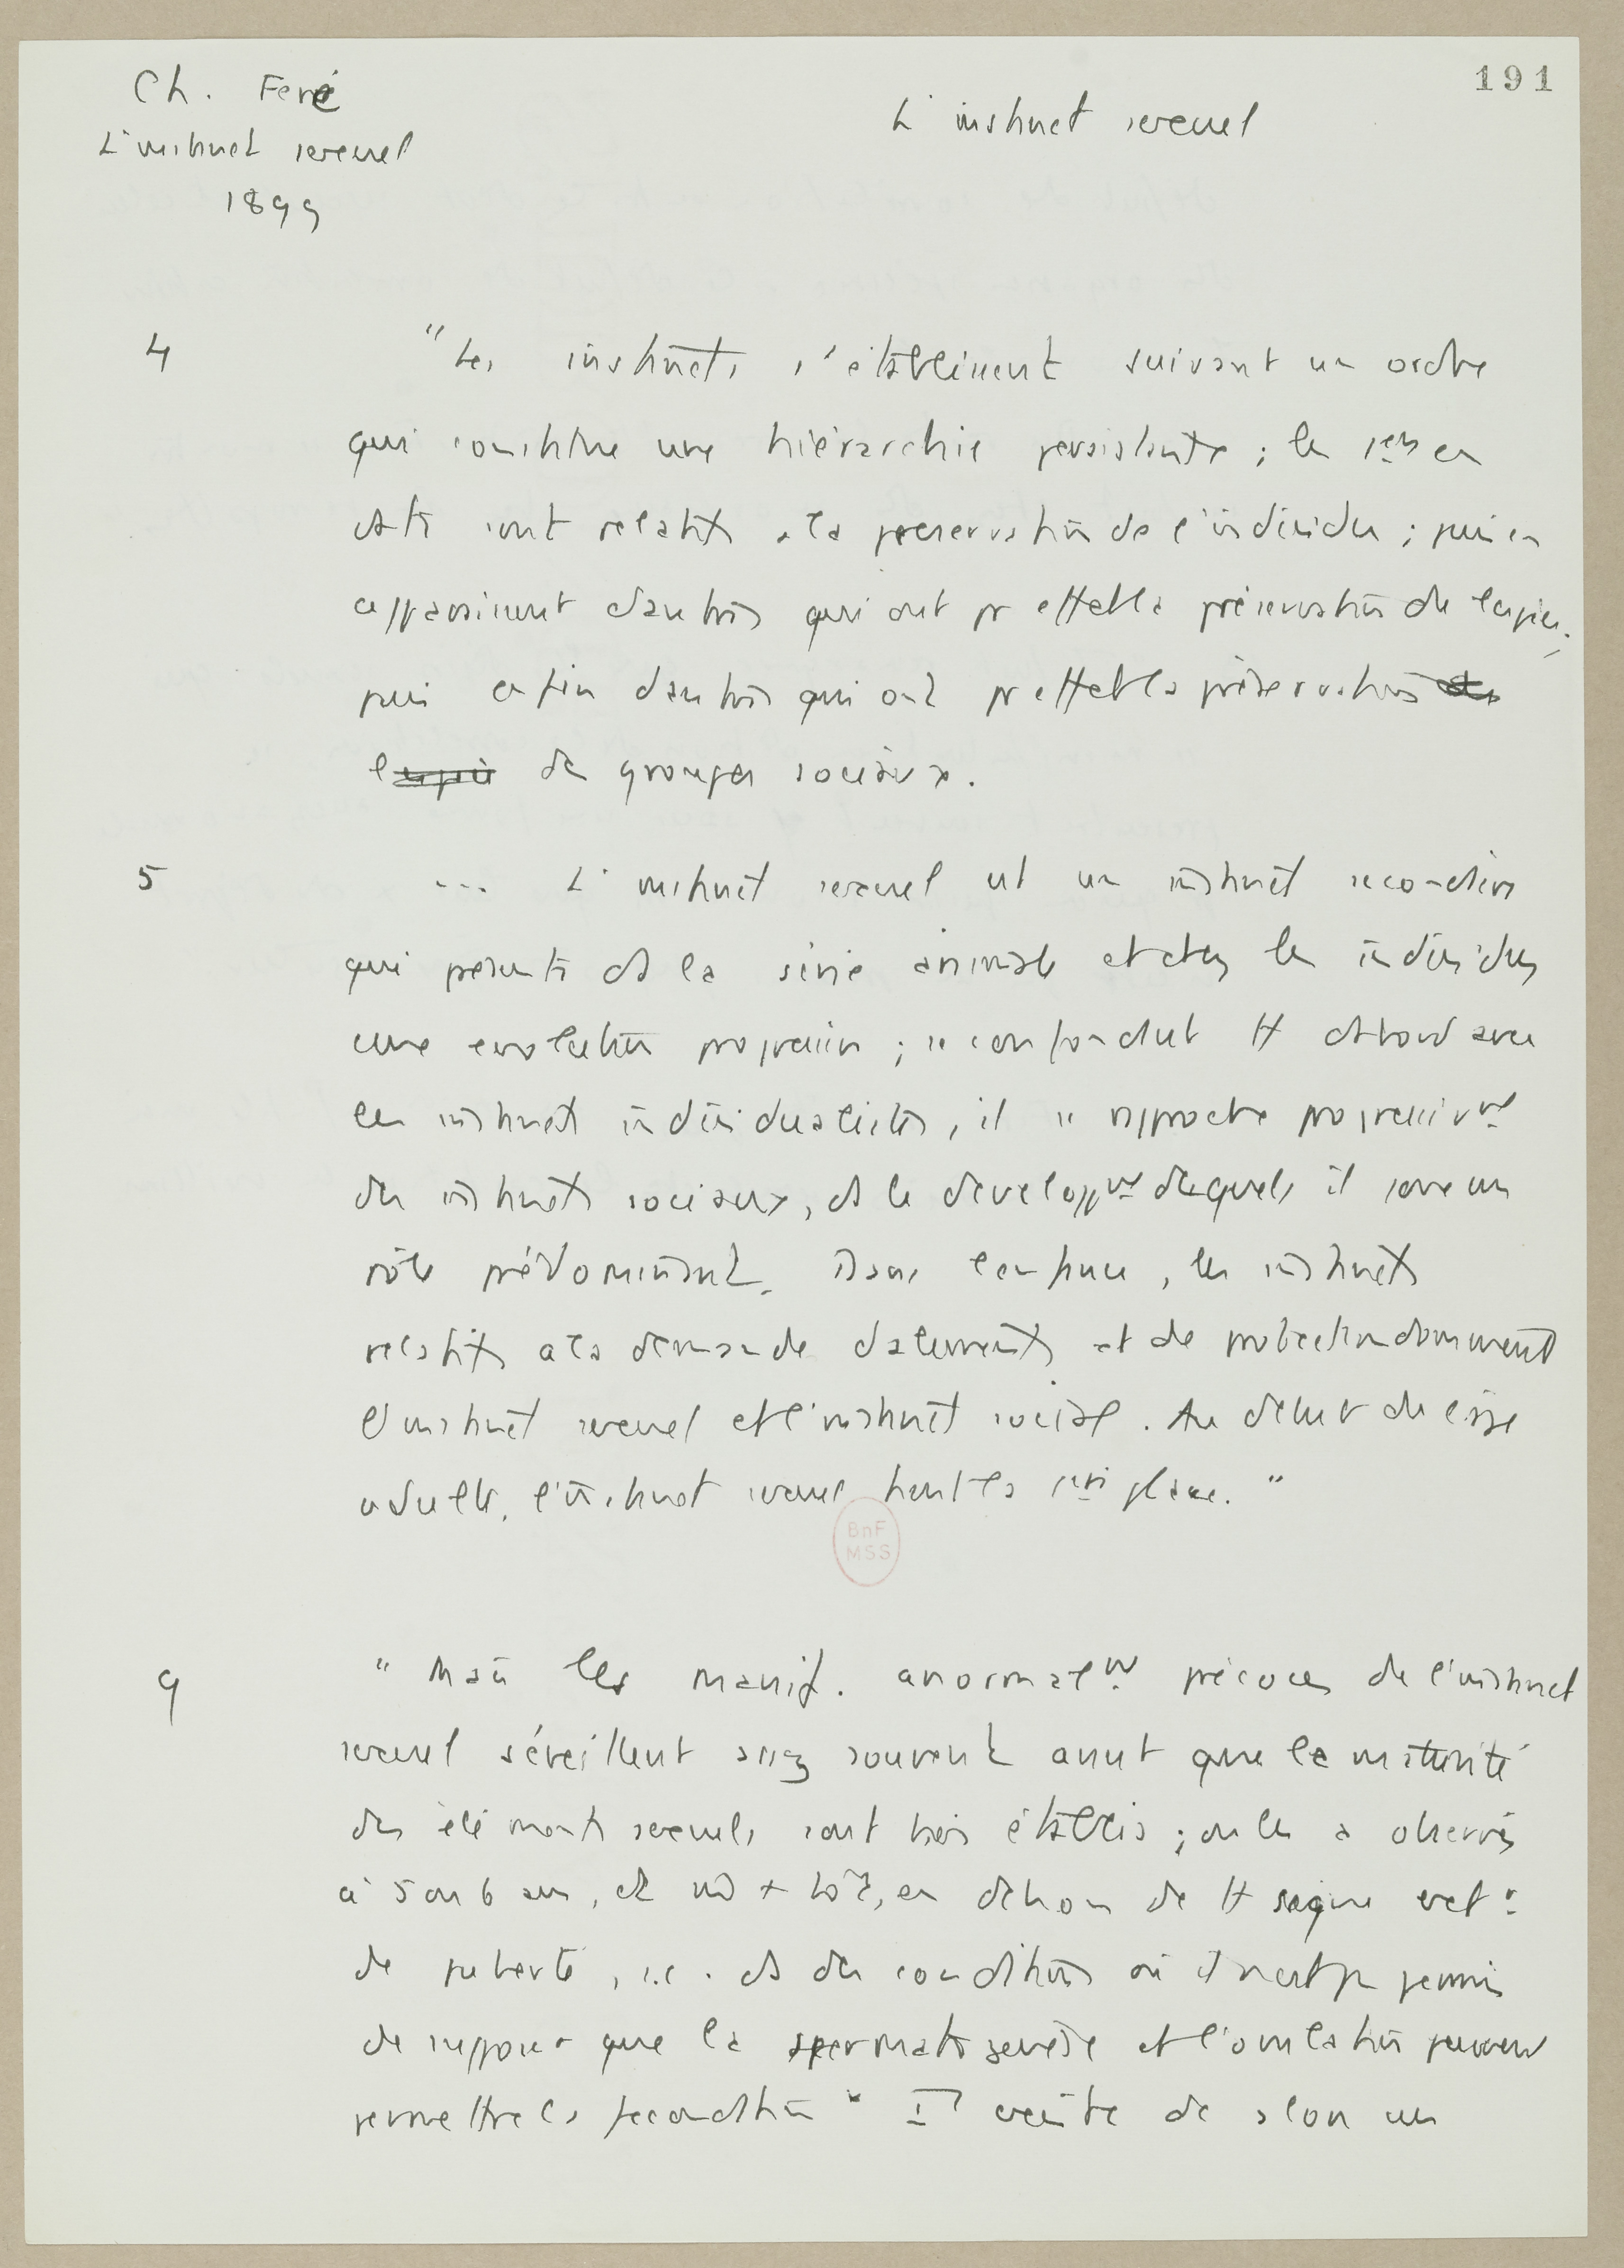 191
Ch. Feré
L'instinct sexuel
1899
L'instinct sexuel
4 "Les instincts s'établissent suivant un ordre
qui constitue une hiérarchie persistante ; les 1ers en
date sont relatifs à la preservation de l'individu ; puis en
apparaissent d'autres qui ont pr effet la préservation de l'espèce ;
puis enfin d'autres qui ont pr effet la préservation de
l'espèce de groupes sociaux.
5 ... L'instinct sexuel est un instinct secondaire
qui présente ds la série animale et chez les individus
une evolution progressive ; se confondant tt d'abord avec
les instincts individualistes, il se rapproche progressivt
des instincts sociaux, ds le developpt desquels il joue un
rôle prédominant. Dans l'enfance, les instincts
relatifs à la demande d'aliments et de protection dominent
l'instinct sexuel et l'instinct social. Au début de l'âge
adulte, l'instinct sexuel tient la 1ère place."
9 "Mais les manif. anormalt précoces de l'instinct
sexuel s'éveillent assez souvent avant que la maturité
des éléments sexuels soit bien établie ; on les a observés
à 5 ou 6 ans, et mê + tôt, en dehors de tt signe ext.
de puberté, i.e. ds des conditions où il n'est pas permis
de supposer que la spermatogenèse et l'ovulation peuvent
permettre la fécondation" Il existe de s/on un
BnF
MSS